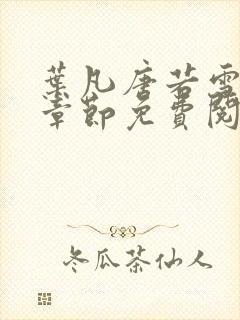 葉凡唐若雪
章節免費閱
冬瓜茶仙人